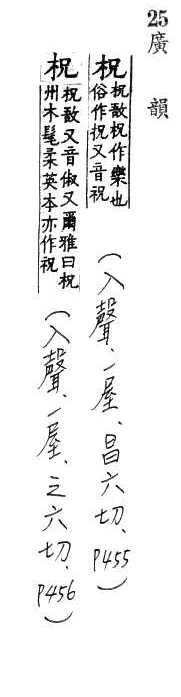 25 廣韻
柷
柷敔柷作樂也
俗作柷又音祝
（入聲、一屋、昌六切、P455）
柷
柷敔又音俶又爾雅曰柷
州木髦柔英本亦作祝
（入聲、一屋、之六切、P456）